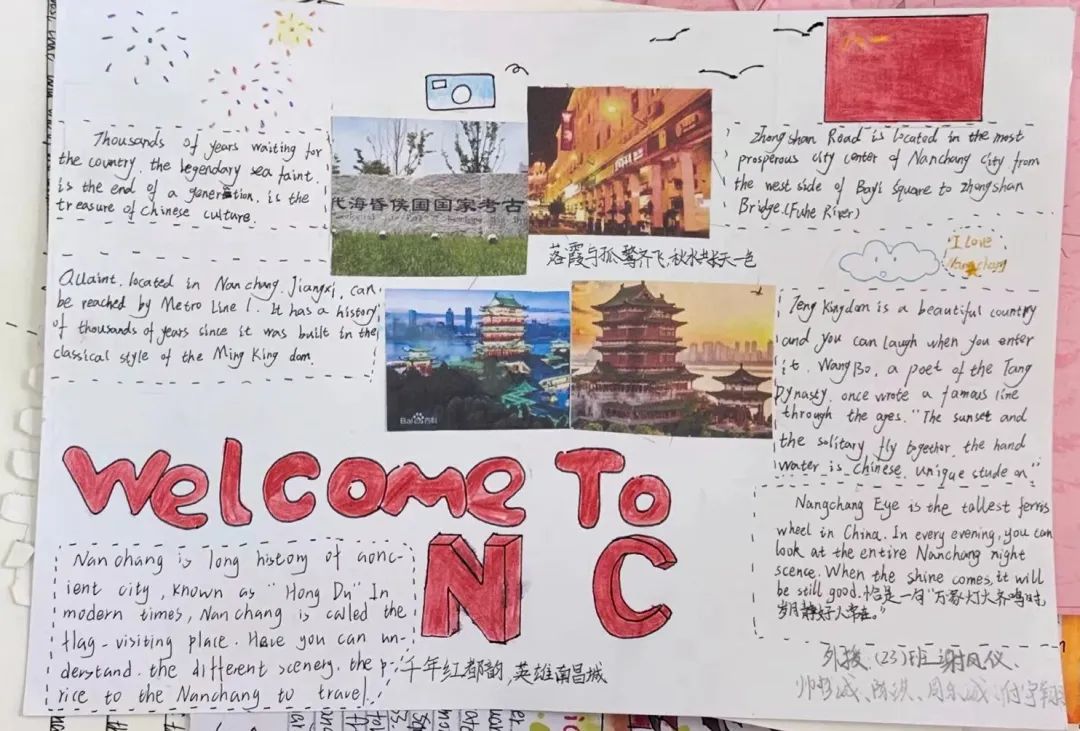 Thousands of years waiting for
the country, the legendary sea faint.
is the end of a generation. is the
treasure of Chinese culture.
代海昏侯国国家考古
落霞与孤鹜齐飞,秋水共长天一色
Zhongshan Road is located in the most
prosperous city center of Nanchang City from
the west side of Bayi Square to Zhongshan
Bridge.(Fuhe River)
I love
Nanchang
Qllaint, located in Nanchang, Jiangxi, can
be reached by Metro Line 1. It has a history
of thousands of years since it was built in the
classical style of the Ming King dom.
Baidu百科
Teng Kingdom is a beautiful country
and you can laugh when you enter
it. Wang Bo, a poet of the Tang
Dynasty, once wrote a famous line
through the ages. "The sunset and
the solitary fly together, the hand
water is chinese. unique stude on"
Welcome To
NC
Nangchang Eye is the tallest ferris
wheel in China. In every evening, you can
look at the entire Nanchang night
scence. When the shine comes, it will
be still good. 恰是一句"万家灯火齐鸣时,
岁月静好人常在。"
Nanchang is long history of aonc-
ient city, known as "Hong Du" In
modern times, Nanchang is called the
flag-visiting place. Have you can un-
derstand. the different scenery. the p
rice to the Nanchang to travel.
千年红都韵,英雄南昌城
(23)班